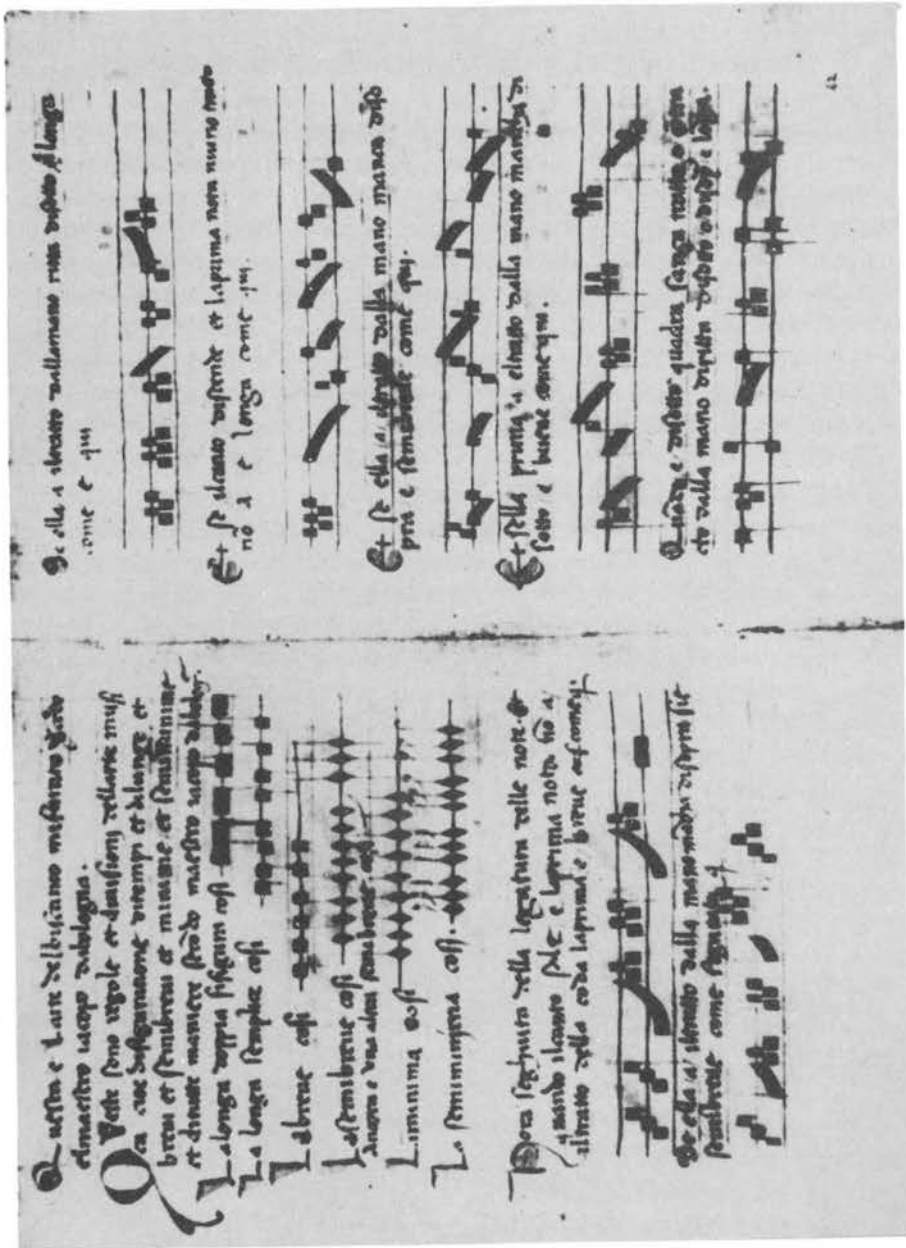 Questa e larte delbiscanto misurato
elmaestro iacopo dabologna.
Queste sono regole et diuisioni dellarte musi
ca cioe difigurazione ditempi et dilonge et
breui et semibreui et minime et semiminime
et ditutte maniere maestro iacopo
La longa doppia cosi
La longa semplice cosi
La breue cosi
La semibreue cosi
ancora e una altra semibreue cosi
La minima cosi
La semiminima cosi.
della legatura delle note. et
quando ilcanto sale e laprima nota no a
iltratto della coda laprima e breue
Se ella a iltratto dalla mano disopra sie
semibreue come
Se ella a iltratto dallamano disotto e longa
come e qui
Et se ilcanto discende et laprima nota
no a e longa come qui
Et se ella a iltratto dalla mano manca diso
pra e semibreue come qui.
Et sella prima a eltratto dalla mano mancha di
sotto e breue come qui.
disotto quadra sanza tratto o
cto dalla mano diritta disotto o e longa.
42